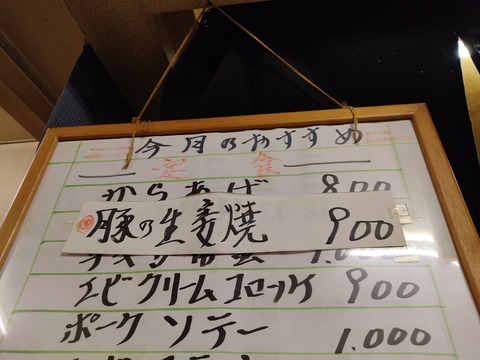 今月のおすすめ
定食
からあげ 800
豚の生姜焼 900
エビクリームコロッケ 900
ポークソテー 1.000